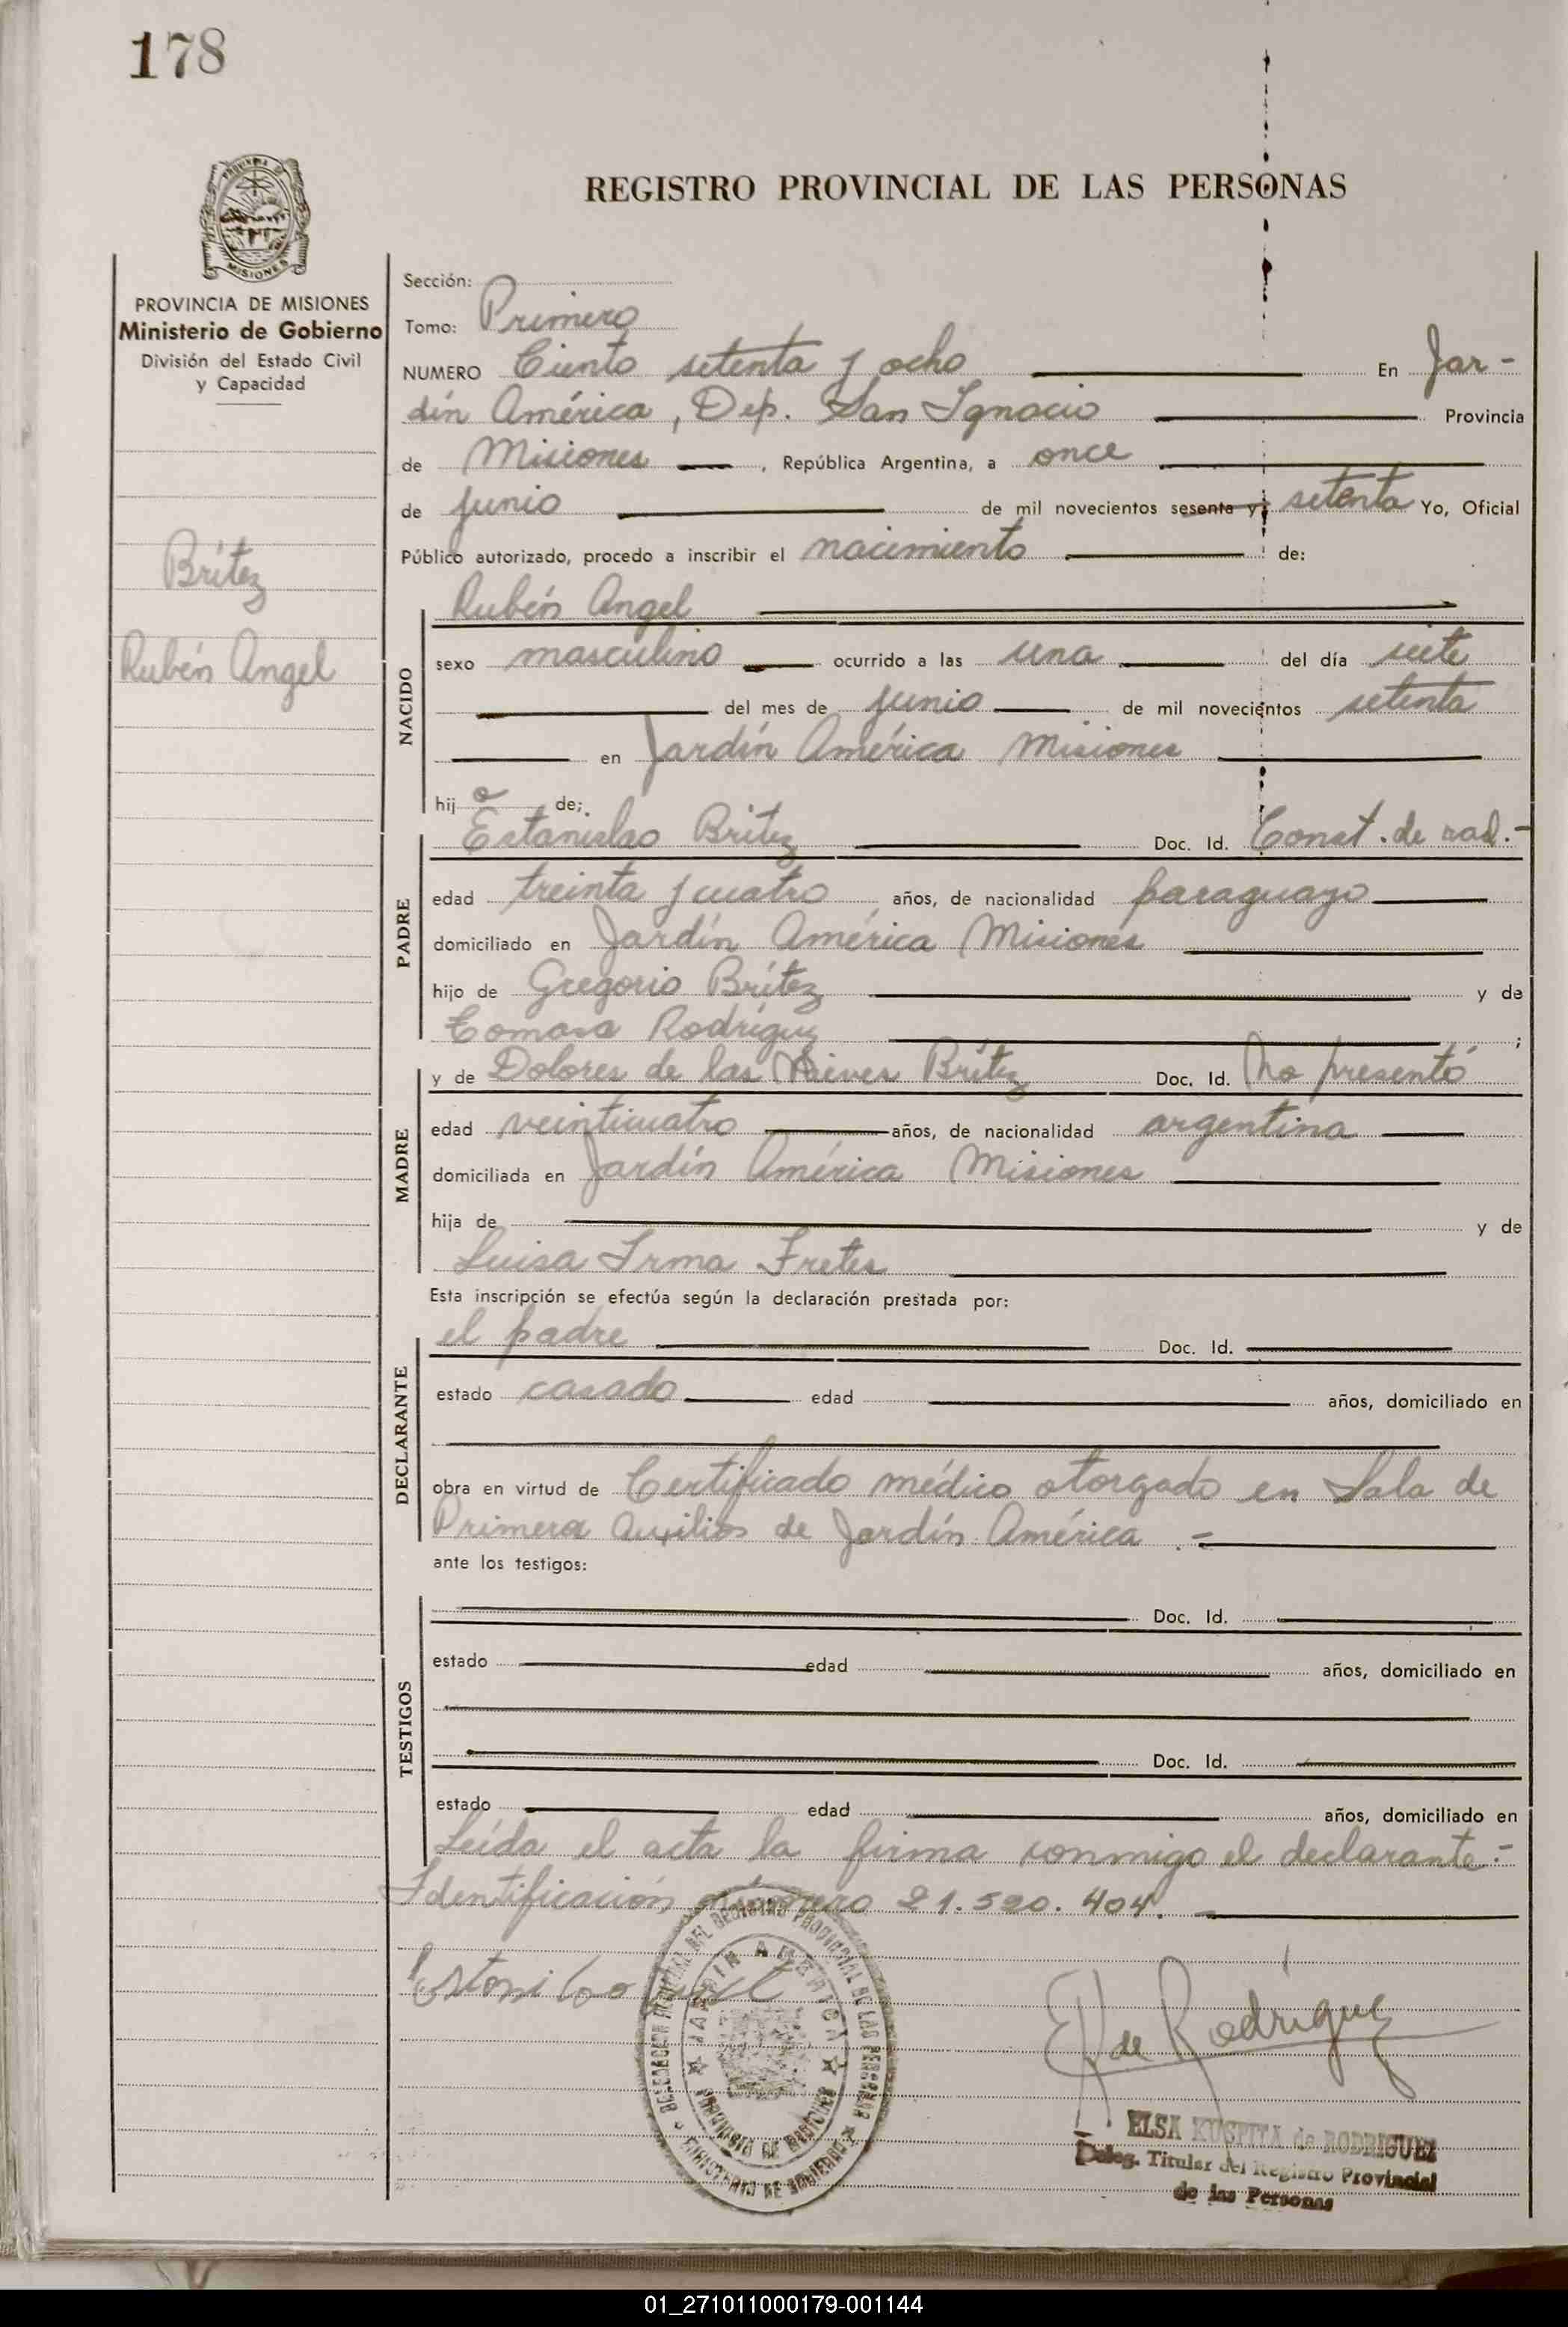 178
PROVINCIA DE MISIONES
Ministerio de Gobierno
División del Estado Civil
y Capacidad
Brítez
Rubén Angel
REGISTRO PROVINCIAL DE LAS PERSONAS
Sección:
Tomo: Primero
NUMERO Ciento setenta y ocho En Jar-
dín América, Dep. San Ignacio Provincia
de Misiones, República Argentina, a once
de junio de mil novecientos sesenta y setenta Yo, Oficial
Público autorizado, procedo a inscribir el nacimiento de:
Rubén Angel
NACIDO
sexo masculino ocurrido a las una del día siete
del mes de junio de mil novecientos setenta
en Jardín América Misiones
hijo de;
PADRE
Estanislao Brítez Doc. Id. Const. de rad.-
edad treinta y cuatro años, de nacionalidad paraguayo
domiciliado en Jardín América Misiones
hijo de Gregorio Brítez y de
Tomasa Rodríguez ;
MADRE
y de Dolores de las Nieves Brítez Doc. Id. No presentó
edad veinticuatro años, de nacionalidad argentina
domiciliada en Jardín América Misiones
hija de y de
Luisa Irma Fretes
Esta inscripción se efectúa según la declaración prestada por:
DECLARANTE
el padre Doc. Id.
estado casado edad años, domiciliado en
obra en virtud de Certificado médico otorgado en Sala de
Primera Auxilios de Jardín América .=
ante los testigos:
TESTIGOS
Doc. Id.
estado edad años, domiciliado en
Doc. Id.
estado edad años, domiciliado en
Leída el acta la firma conmigo el declarante.-
Identificación número 21.520.404.
JARDIN AMERICA
PROVINCIA DE MISIONES
MINISTERIO DE GOBIERNO
EK de Rodríguez
ELSA KUSPITA de RODRIGUEZ
Deleg. Titular del Registro Provincial
de las Personas
01_271011000179-001144